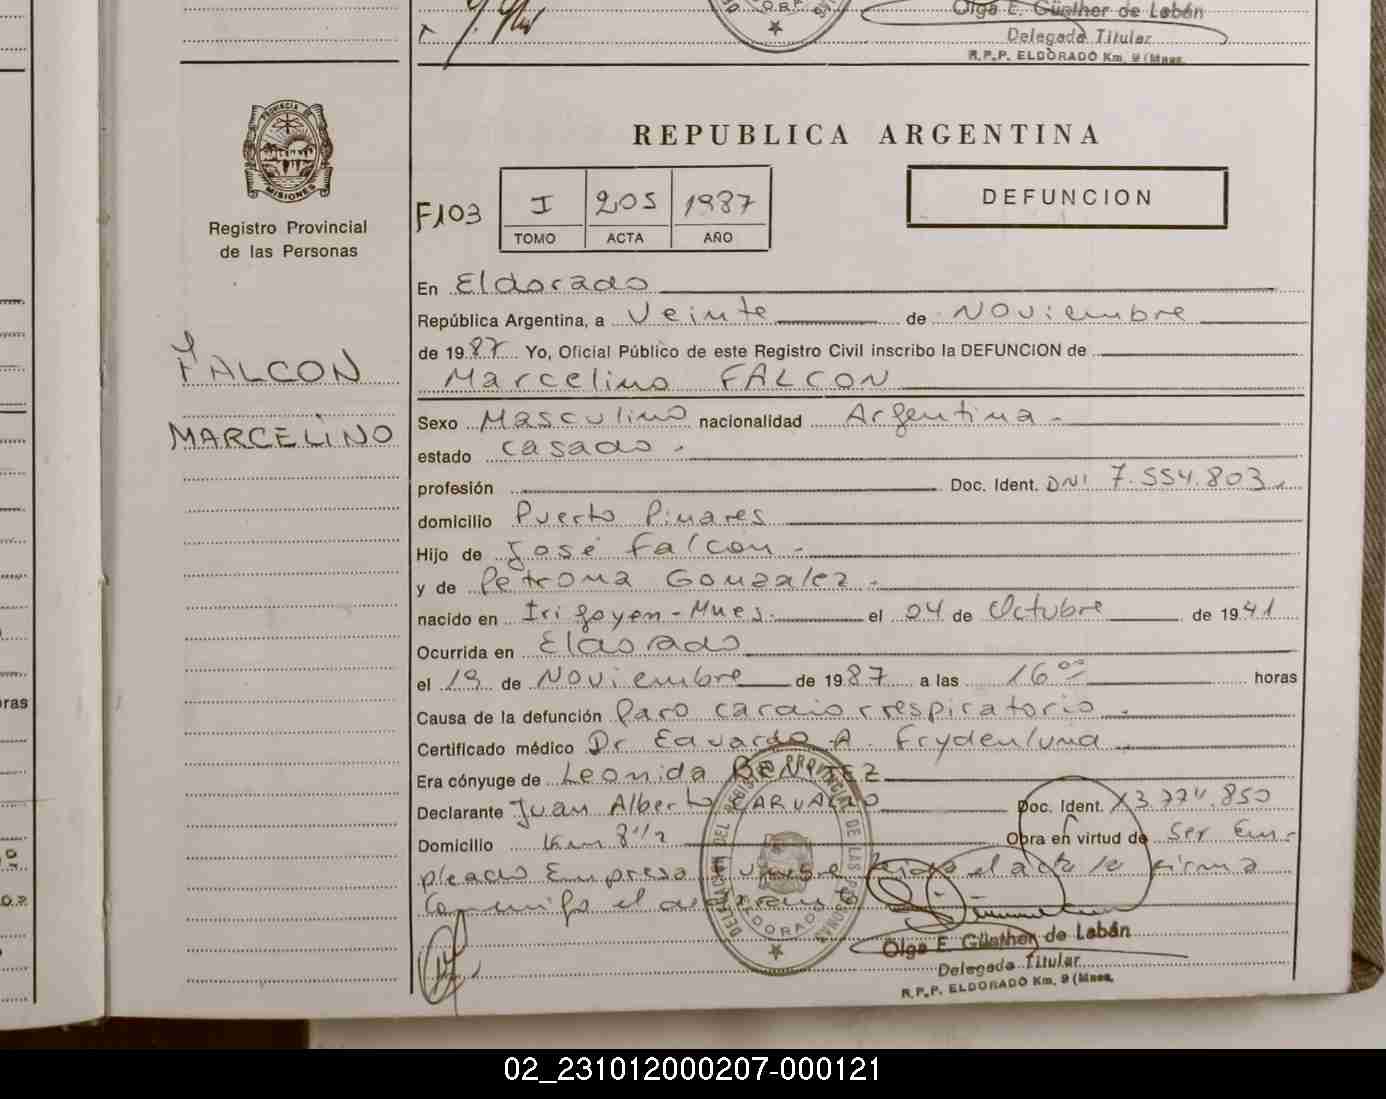 Olga E. Günther de Labán
Delegada Titular
R.P.P. ELDORADO Km. 9 (Mnes.
PROVINCIA DE
MISIONES
Registro Provincial
de las Personas
FALCON
MARCELINO
REPUBLICA ARGENTINA
F103
I 205 1987
TOMO ACTA AÑO
DEFUNCION
En Eldorado
República Argentina, a Veinte de Noviembre
de 1987 Yo, Oficial Público de este Registro Civil inscribo la DEFUNCION de
Marcelino FALCON
Sexo Masculino nacionalidad Argentina -
estado casado -
profesión Doc. Ident. DNI 7.554.803
domicilio Puerto Pinares
Hijo de José Falcon -
y de Petrona Gonzalez -
nacido en Irigoyen - Mnes. el 04 de Octubre de 1941
Ocurrida en Eldorado
el 19 de Noviembre de 1987 a las 16 00 horas
Causa de la defunción Paro cardiorrespiratorio -
Certificado médico Dr Eduardo A. Frydenlund
Era cónyuge de Leonida BENITEZ
Declarante Juan Alberto CARVALLO Doc. Ident. 13.774.850
Domicilio Km 8 1/2 Obra en virtud de Ser Em-
pleado Empresa Funebre Leida el acta la firma
conmigo el declarante
DELEGACION DEL REGISTRO PROVINCIAL DE LAS PERSONAS
ELDORADO
Olga E. Günther de Labán
Delegada Titular
R.P.P. ELDORADO Km. 9 (Mnes.
02_231012000207-000121